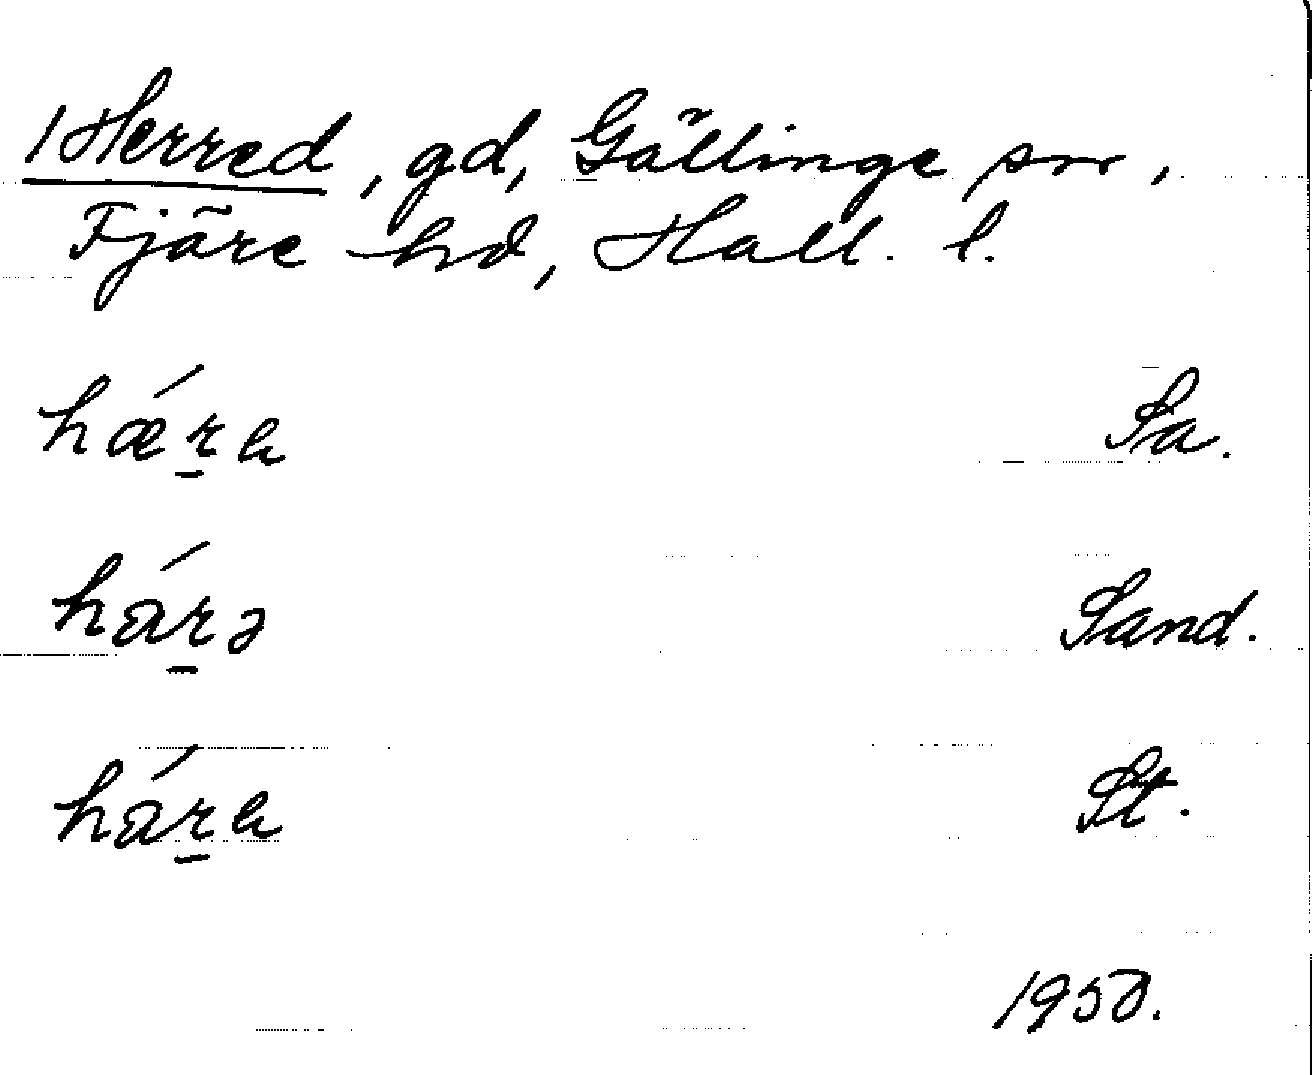 Herred, gd, Gällinge sn,
Fjäre hd, Hall. l.
hǽr̲a Sa.
hár̲ə Sand.
hár̲a St.
1950.